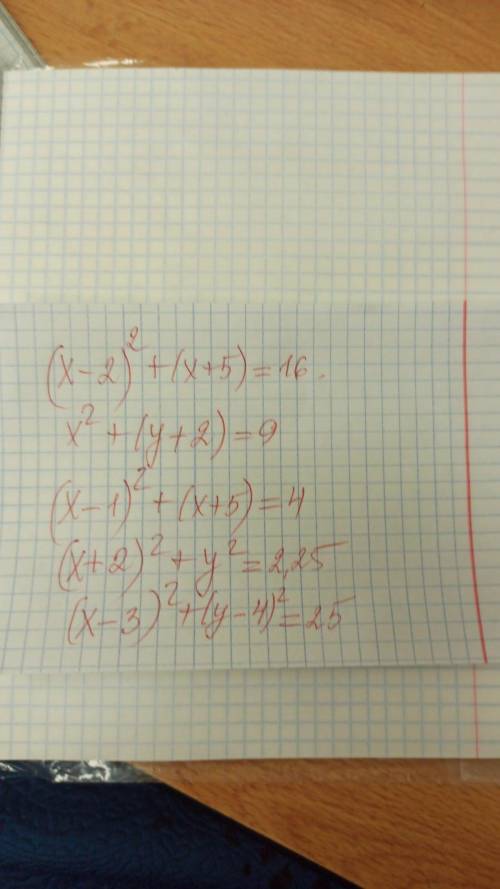 (x-2)² + (x+5) = 16.
x² + (y+2) = 9
(x-1)² + (x+5) = 4
(x+2)² + y² = 2,25
(x-3)² + (y-4)² = 25